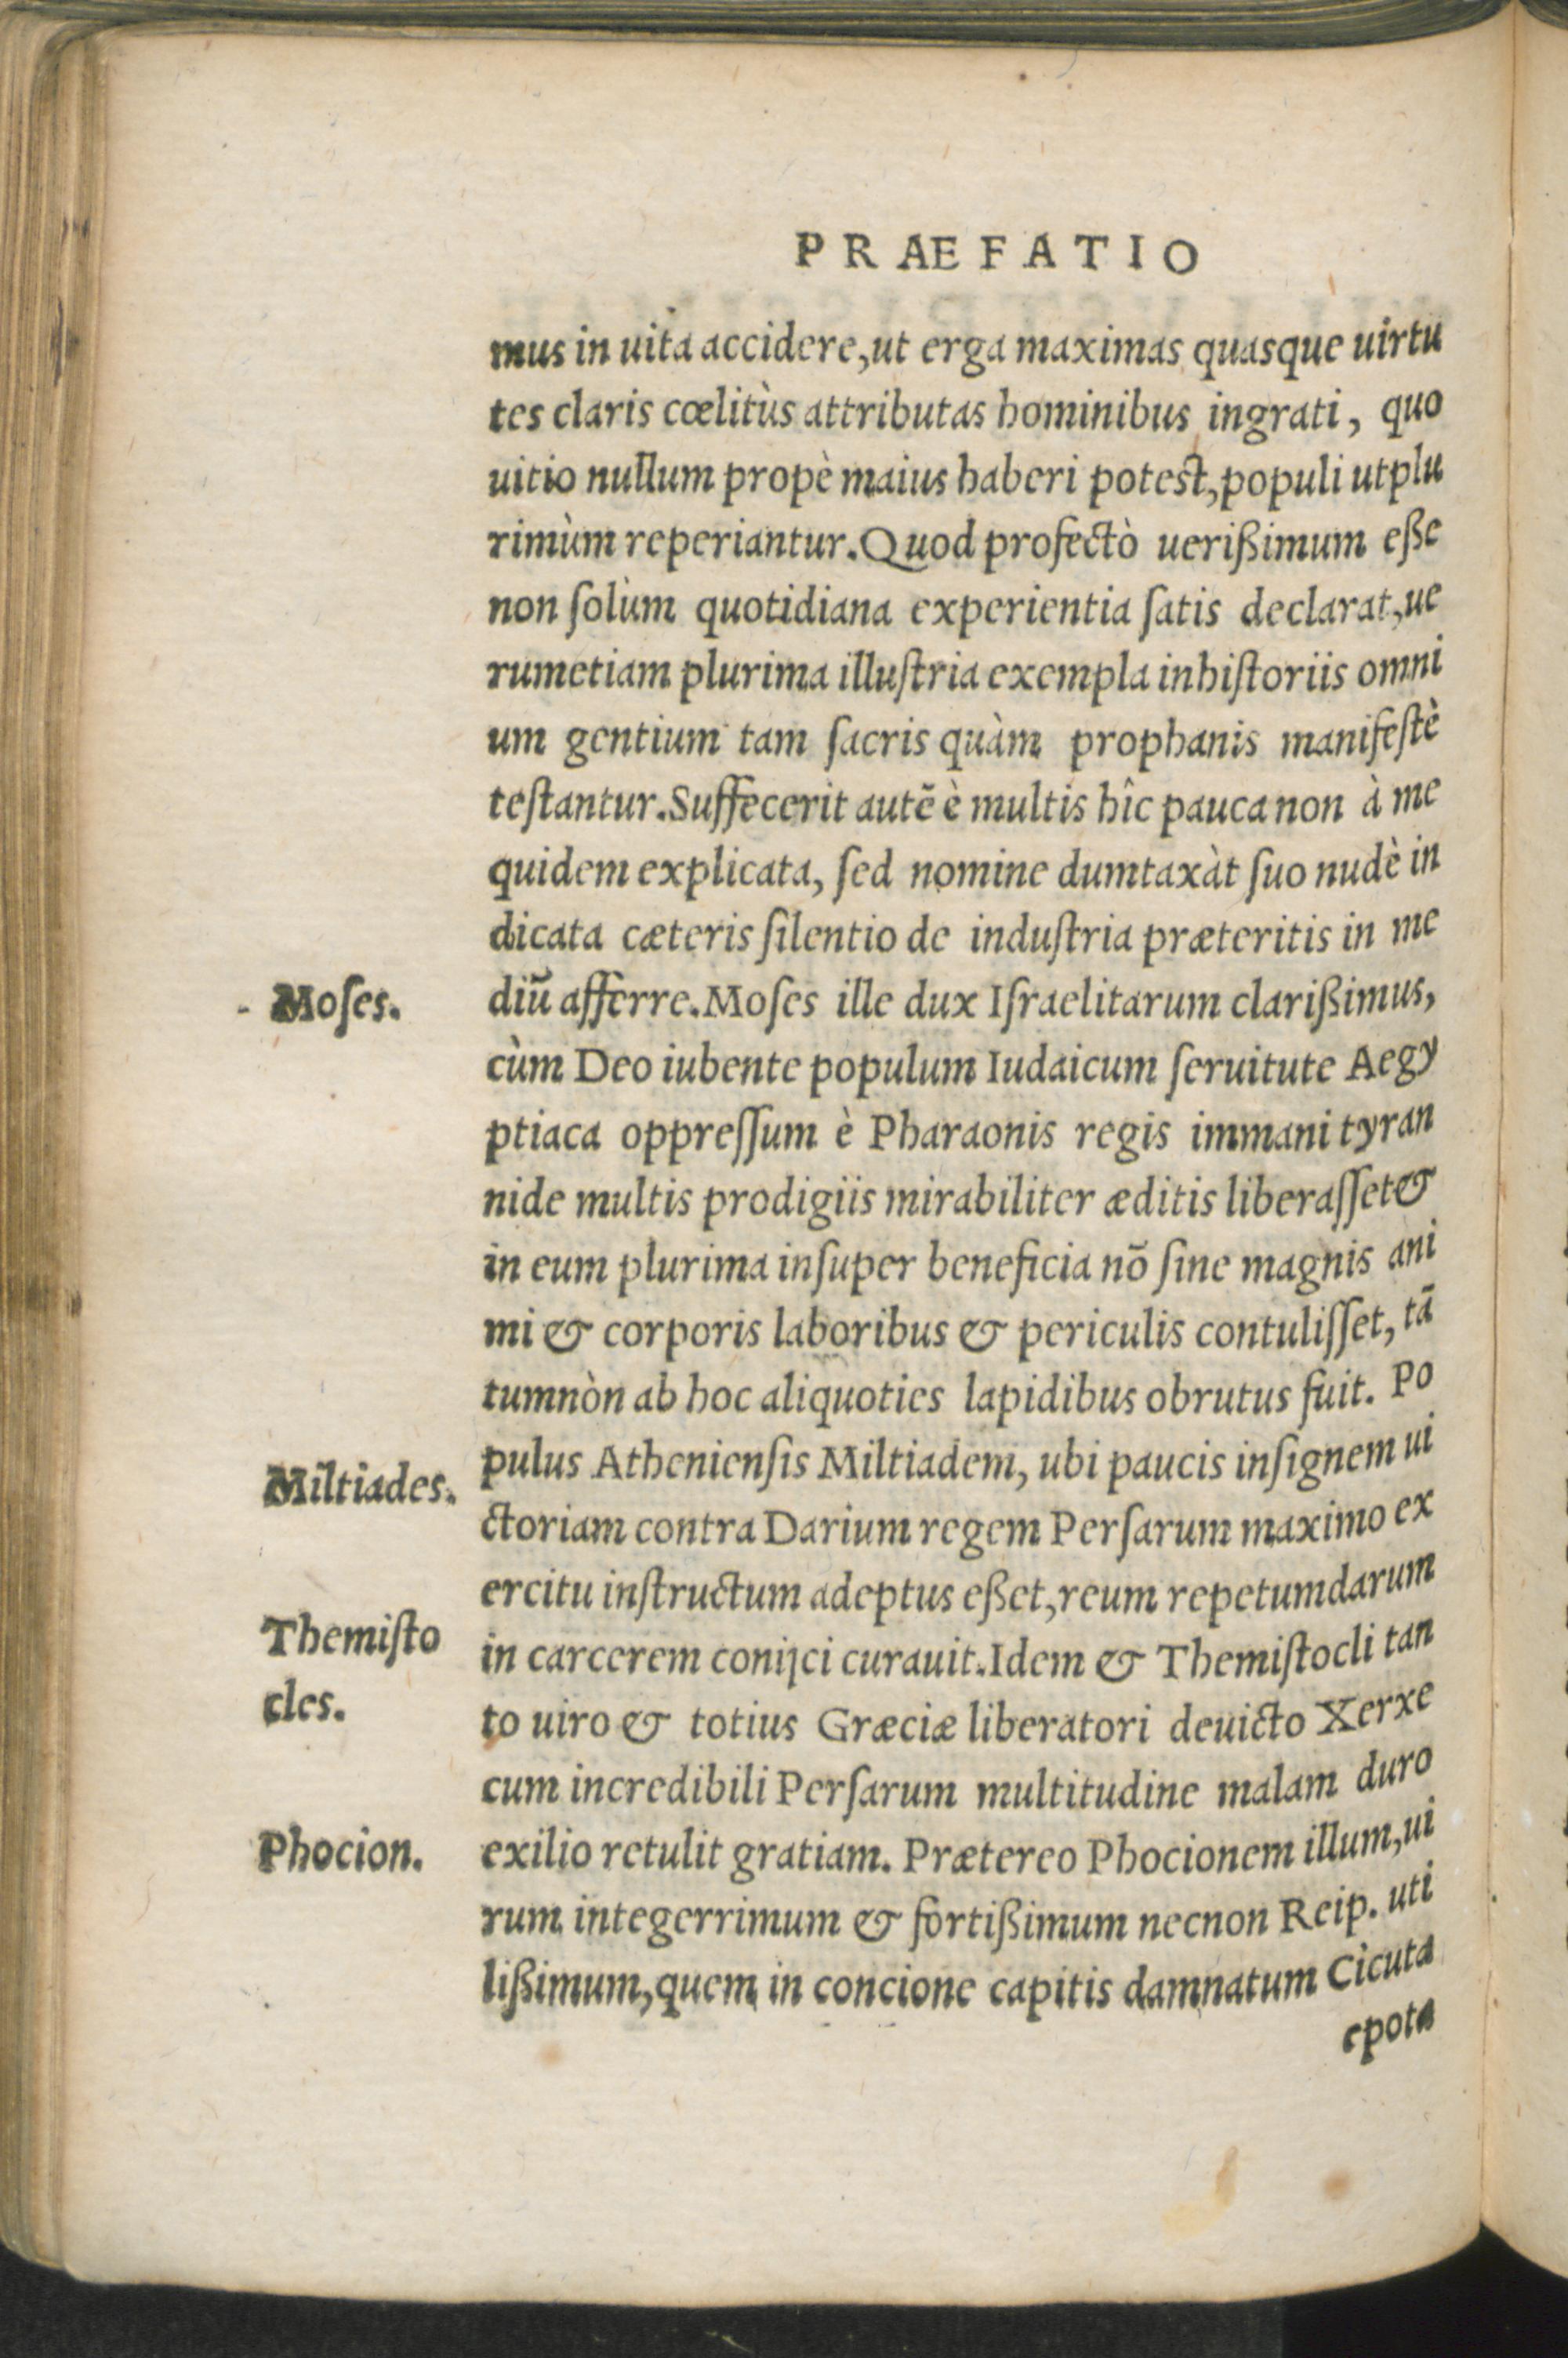 PRAEFATIO
mus in uita accidere,ut erga maximas quasque uirtu
tes claris cœlitùs attributas hominibus ingrati, quo
uitio nullum propè maius haberi potest,populi utplu
rimùm reperiantur.Quod profectò uerißimum eße
non ſolùm quotidiana experientia ſatis declarat,ue
rumetiam plurima illuſtria exempla inhiſtoriis omni
um gentium tam ſacris quàm prophanis manifeſtè
teſtantur.Suffecerit autē è multis hîc pauca non à me
quidem explicata, ſed nomine dumtaxàt ſuo nudè in
dicata cæteris ſilentio de induſtria præteritis in me
Moſes.
diū afferre.Moſes ille dux Iſraelitarum clarißimus,
cùm Deo iubente populum Iudaicum ſeruitute Aegy
ptiaca oppreſſum è Pharaonis regis immani tyran
nide multis prodigiis mirabiliter æditis liberaſſet&
in eum plurima inſuper beneficia nō ſine magnis ani
mi & corporis laboribus & periculis contuliſſet, tā
tumnòn ab hoc aliquoties lapidibus obrutus fuit. Po
Miltiades.
pulus Athenienſis Miltiadem, ubi paucis inſignem ui
ctoriam contra Darium regem Perſarum maximo ex
ercitu inſtructum adeptus eßet,reum repetumdarum
Themiſto
in carcerem coniјci curauit.Idem & Themiſtocli tan
cles.
to uiro & totius Græciæ liberatori deuicto Xerxe
cum incredibili Perſarum multitudine malam duro
Phocion.
exilio retulit gratiam. Prætereo Phocionem illum,ui
rum integerrimum & fortißimum necnon Reip. uti
lißimum,quem in concione capitis damnatum Cicuta
epota